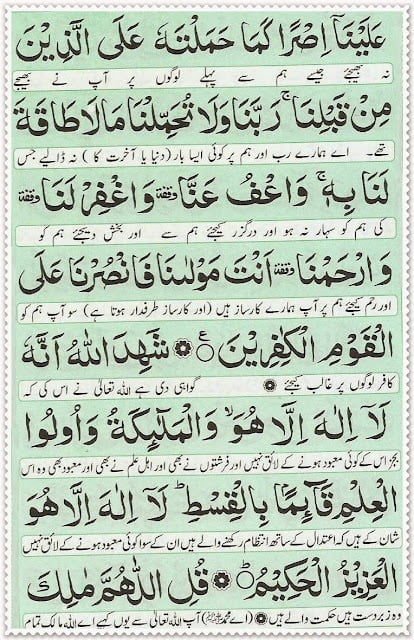 عَلَيْنَاۤ اِصْرًا كَمَا حَمَلْتَهٗ عَلَى الَّذِيْنَ
نہ بھیجئے جیسے ہم سے پہلے لوگوں پر آپ نے بھیجے
مِنْ قَبْلِنَا ۚ رَبَّنَا وَلَا تُحَمِّلْنَا مَا لَا طَاقَةَ
تھے۔ اے ہمارے رب اور ہم پر کوئی ایسا بار (دنیا یا آخرت کا) نہ ڈالیے جس
لَنَا بِهٖ ۚ وَاعْفُ عَنَّا وقفة وَاغْفِرْ لَنَا وقفة
کی ہم کو سہار نہ ہو اور درگزر کیجئے ہم سے اور بخش دیجئے ہم کو
وَارْحَمْنَا وقفة اَنْتَ مَوْلٰىنَا فَانْصُرْنَا عَلَى
اور رحم کیجئے ہم پر آپ ہمارے کارساز ہیں (اور کارساز طرفدار ہوتا ہے) سو آپ ہم کو
الْقَوْمِ الْكٰفِرِيْنَ ۝ ع شَهِدَ اللّٰهُ اَنَّهٗ
کافر لوگوں پر غالب کیجئے گواہی دی ہے اللہ تعالٰی نے اس کی کہ
لَاۤ اِلٰهَ اِلَّا هُوَ ۙ وَالْمَلٰٓئِكَةُ وَاُولُوا
بجز اس کے کوئی معبود ہونے کے لائق نہیں اور فرشتوں نے بھی اور اہل علم نے بھی اور معبود بھی وہ اس
الْعِلْمِ قَآئِمًۢا بِالْقِسْطِ ؕ لَاۤ اِلٰهَ اِلَّا هُوَ
شان کے ہیں کہ اعتدال کے ساتھ انتظام رکھنے والے ہیں ان کے سوا کوئی معبود ہونے کے لائق نہیں
الْعَزِيْزُ الْحَكِيْمُ ؕ ۝ قُلِ اللّٰهُمَّ مٰلِكَ
وہ زبردست ہیں حکمت والے ہیں (اے محمد ﷺ) آپ اللہ تعالٰی سے یوں کہیے اے اللہ مالک تمام